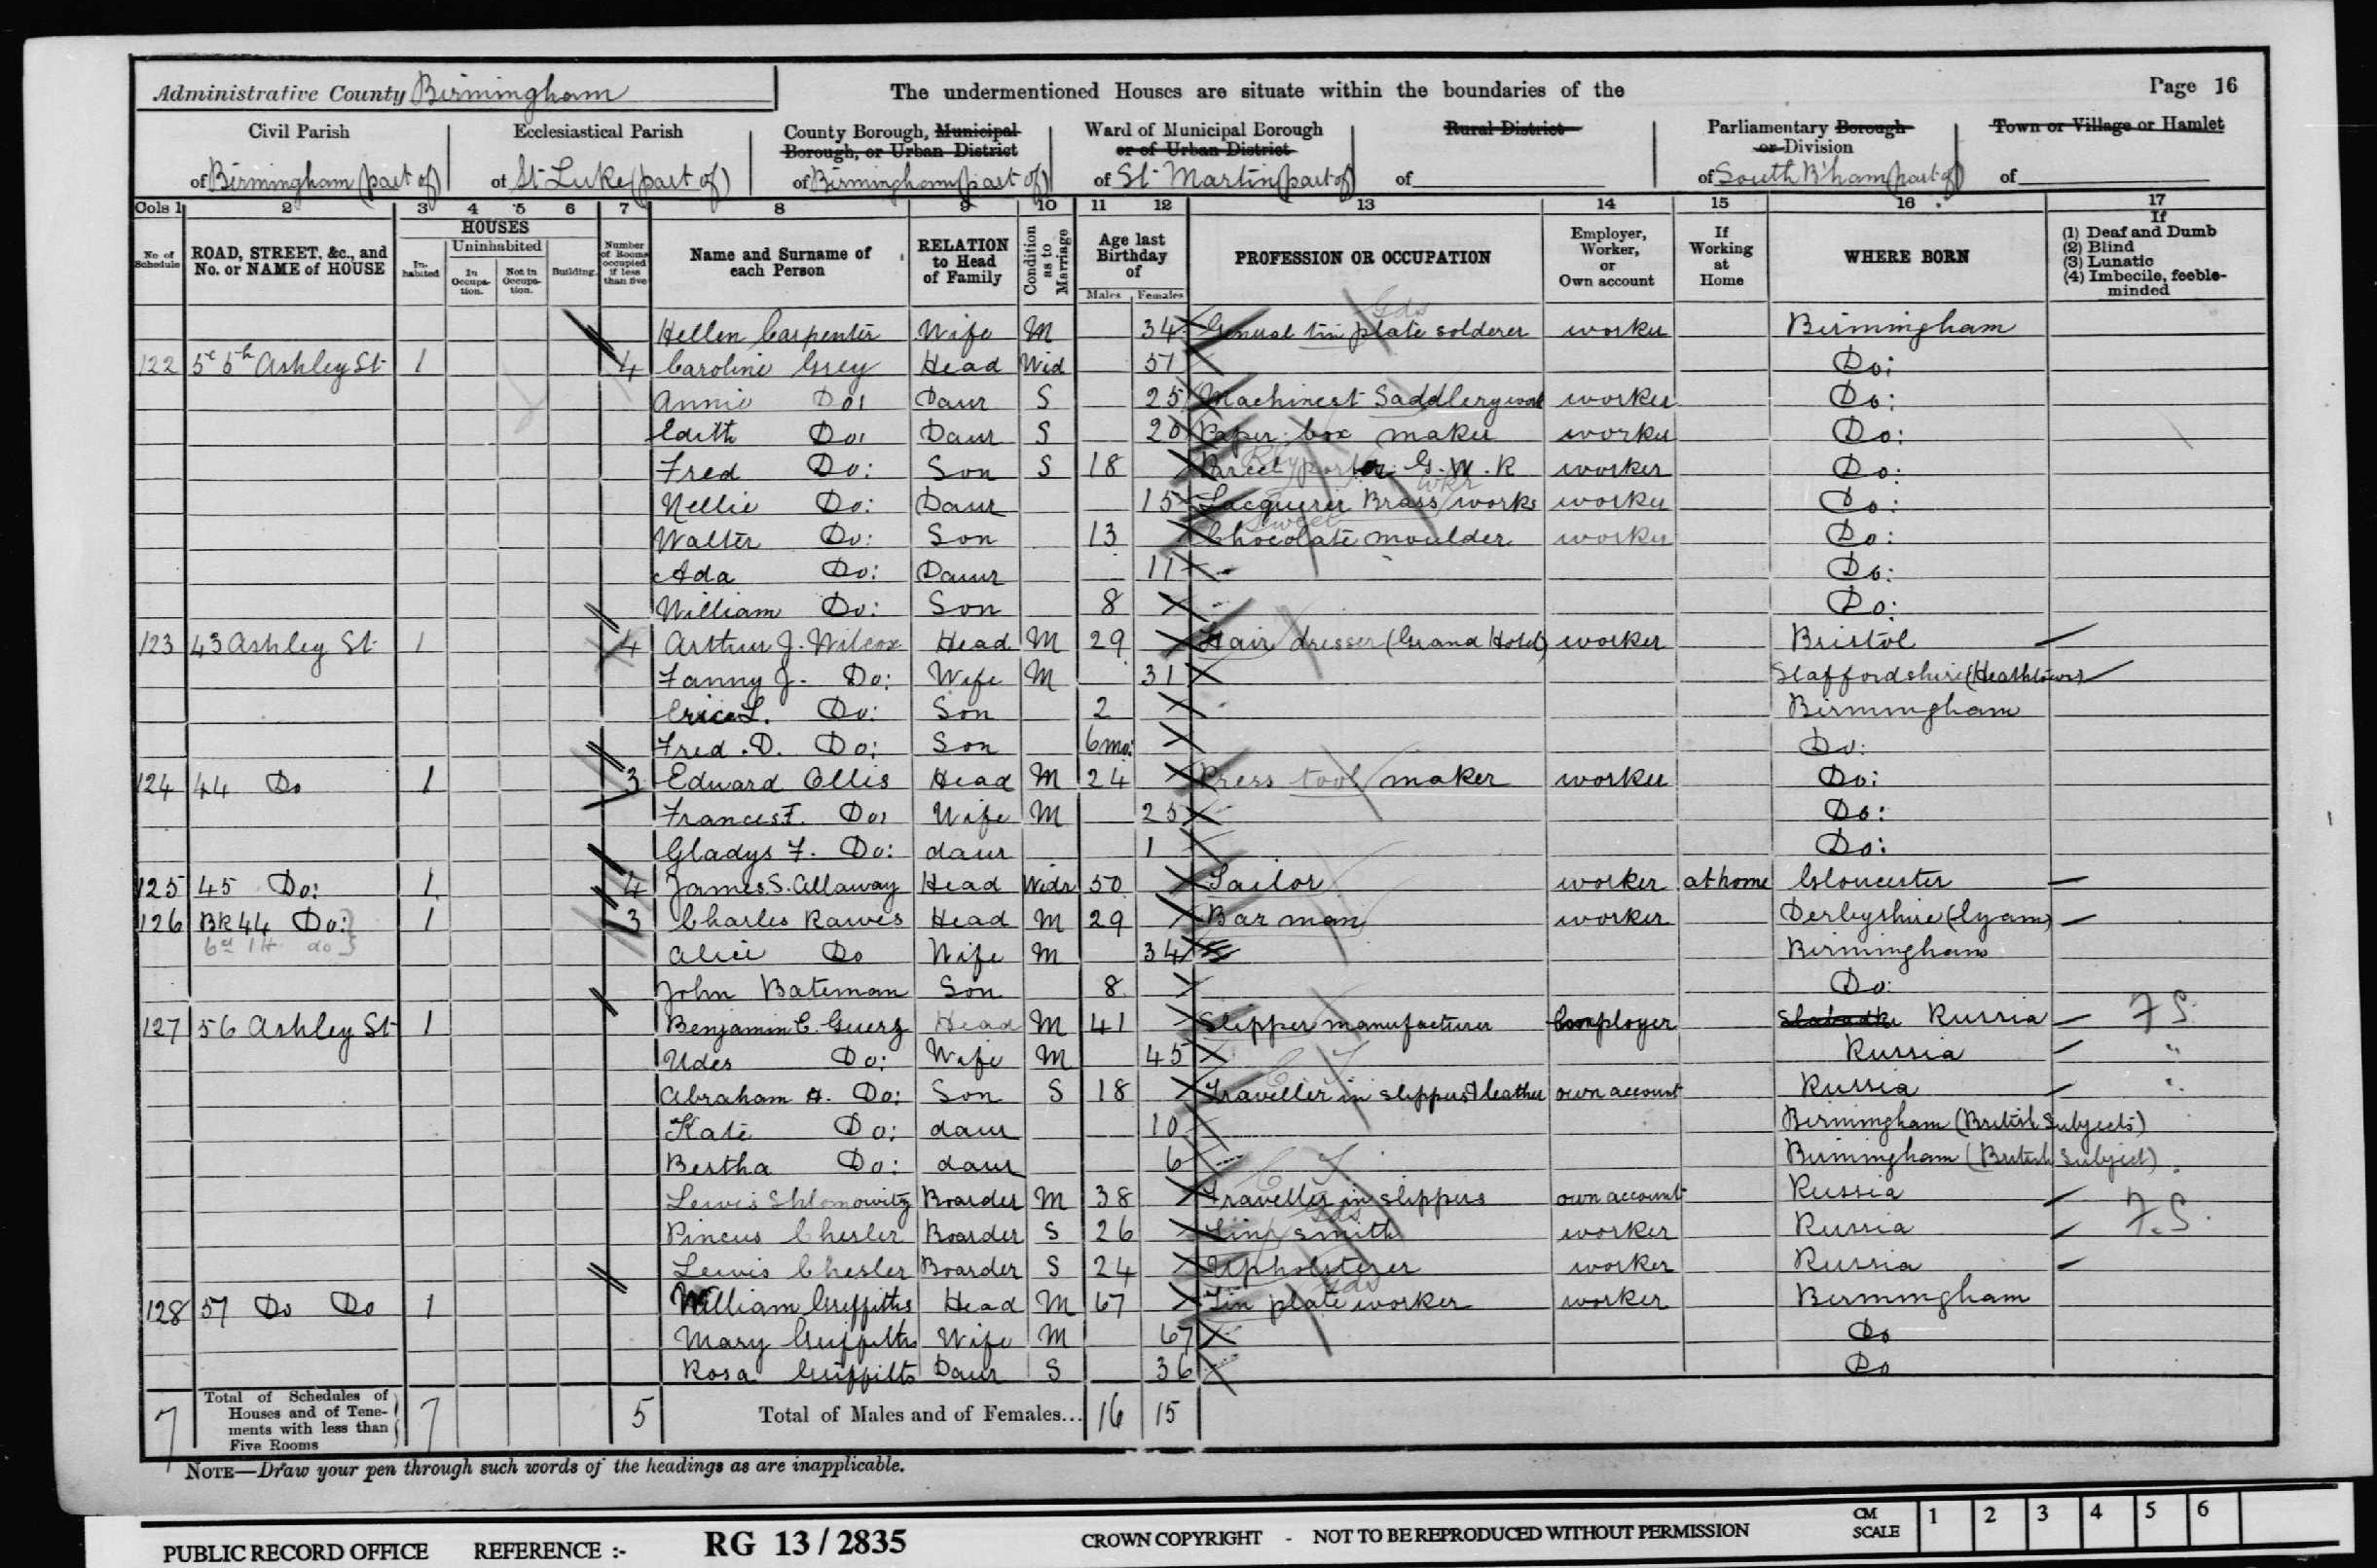 Administrative County Birmingham
The undermentioned Houses are situate within the boundaries of the
Page 16
Civil Parish
of Birmingham (part of)
Ecclesiastical Parish
of St Luke (part of)
County Borough, Municipal
Borough, or Urban District
of Birmingham (part of)
Ward of Municipal Borough
or of Urban District
of St Martin (part of)
Rural District
of
Parliamentary Borough
or Division
of South B'ham (part of)
Town or Village or Hamlet
of
Cols 1 2 3 4 5 6 7 8 9 10 11 12 13 14 15 16 17
No of Schedule
ROAD, STREET, &c., and No. or NAME of HOUSE
HOUSES
In-habited
Uninhabited
In Occupa-tion.
Not in Occupa-tion.
Building.
Number of Rooms occupied if less than five
Name and Surname of each Person
RELATION to Head of Family
Condition as to Marriage
Age last Birthday of
Males Females
PROFESSION OR OCCUPATION
Employer, Worker, or Own account
If Working at Home
WHERE BORN
If
(1) Deaf and Dumb
(2) Blind
(3) Lunatic
(4) Imbecile, feeble-minded
Hellen Carpenter Wife M 34 General tin plate solderer Gds worker Birmingham
122 5c 5h Ashley St 1 4 Caroline Grey Head Wid 51 Do:
Annie Do: Daur S 25 Machinest Saddlery work worker Do:
Edith Do: Daur S 20 Paper box maker worker Do:
Fred Do: Son S 18 Parcel porter G.W.R worker Do:
Nellie Do: Daur 15 Lacquerer Brass works wkr worker Do:
Walter Do: Son 13 Chocolate moulder Sweet worker Do:
Ada Do: Daur 11 Do:
William Do: Son 8 Do:
123 43 Ashley St 1 4 Arthur J. Wilcox Head M 29 Hair dresser (Grand Hotel) worker Bristol
Fanny J. Do: Wife M 31 Staffordshire (Heathtown)
Eric L. Do: Son 2 Birmingham
Fred. D. Do: Son 6mo: Do:
124 44 Do 1 3 Edward Ellis Head M 24 Press tool maker worker Do:
Frances F. Do: Wife M 25 Do:
Gladys F. Do: daur 1 Do:
125 45 Do: 1 4 James S. Allaway Head Widr 50 Tailor worker at home Gloucester
126 BK 44 Do: 1 3 Charles Rawes Head M 29 Bar man worker Derbyshire (Eyam)
do
Alice Do Wife M 34 Birmingham
John Bateman Son 8 Do:
127 56 Ashley St 1 Benjamin C. Guerz Head M 41 Slipper manufacturer Employer Russia F S.
Udes Do: Wife M 45 Russia "
Abraham A. Do: Son S 18 Traveller in slippers & leather own account Russia "
Kate Do: daur 10 Birmingham (British Subjects)
Bertha Do: daur 6 Birmingham (British Subject)
Lewis Shlomowitz Boarder M 38 Traveller in slippers C T own account Russia
Pincus Chesler Boarder S 26 Tin smith Gds worker Russia F.S.
Lewis Chesler Boarder S 24 Upholsterer worker Russia
128 57 Do Do 1 William Griffiths Head M 67 Tin plate worker Gds worker Birmingham
Mary Griffiths Wife M 67 Do
Rosa Griffiths Daur S 36 Do
7 Total of Schedules of Houses and of Tene-ments with less than Five Rooms 7 5 Total of Males and of Females... 16 15
NOTE—Draw your pen through such words of the headings as are inapplicable.
PUBLIC RECORD OFFICE REFERENCE :- RG 13/2835 CROWN COPYRIGHT - NOT TO BE REPRODUCED WITHOUT PERMISSION
CM SCALE 1 2 3 4 5 6